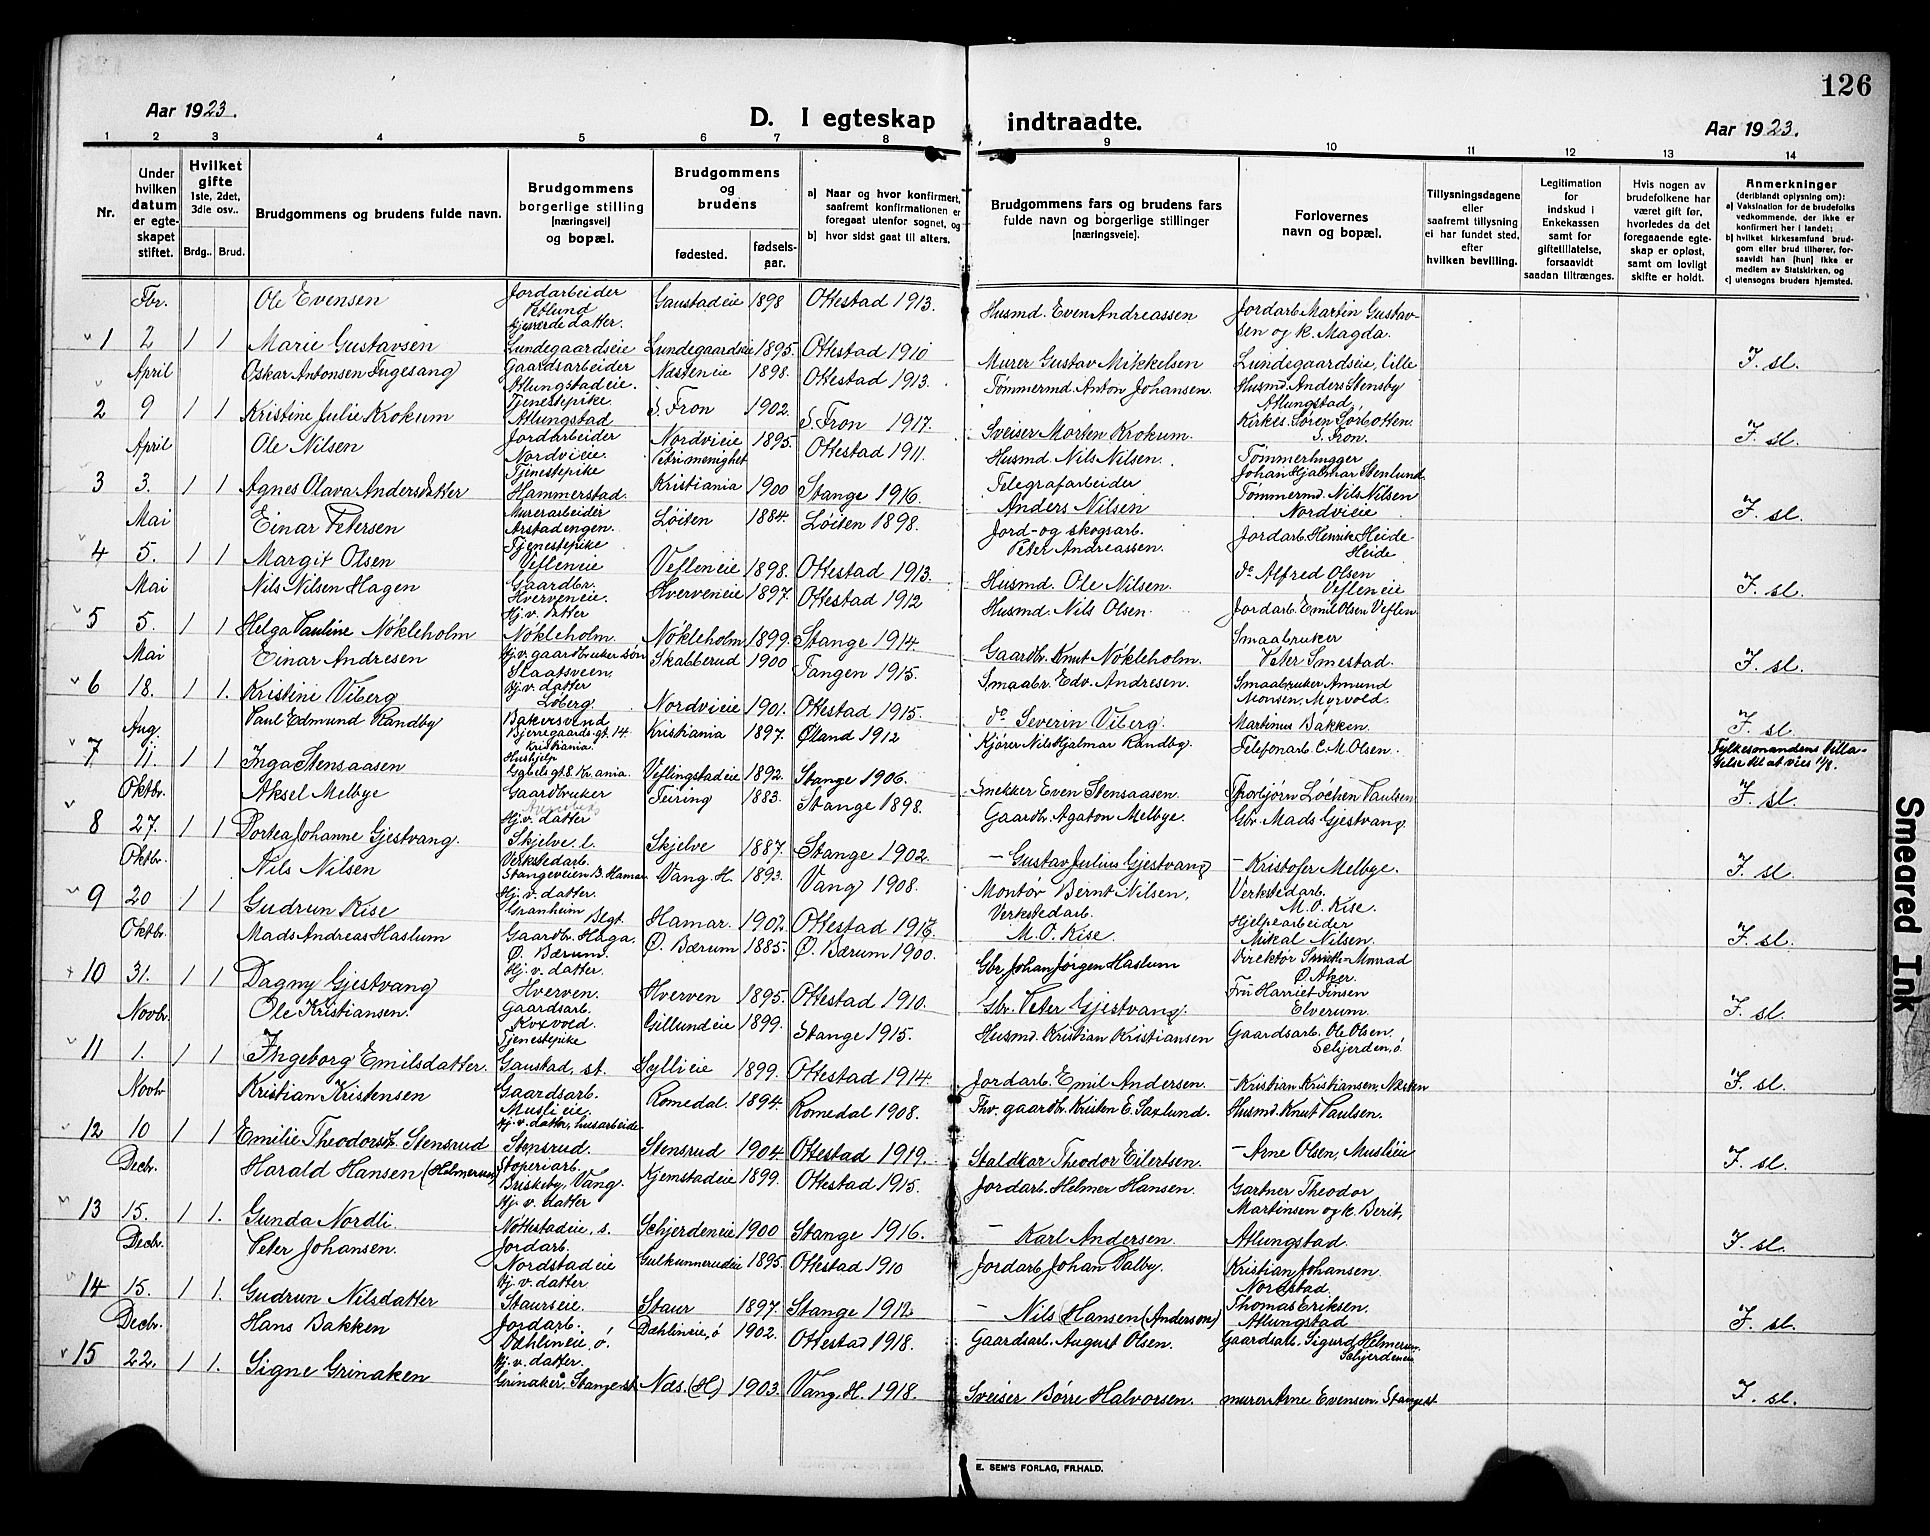 126
Aar 1923.
D. I egteskap indtraadte.
Aar 1923.
1 2 3 4 5 6 7 8 9 10 11 12 13 14
Nr.
Under hvilken datum er egteskapet stiftet.
Hvilket gifte 1ste, 2det, 3die osv..
Brdg.. Brud.
Brudgommens og brudens fulde navn.
Brudgommens borgerlige stilling [næringsvei] og bopæl.
Brudgommens og brudens
fødested. fødselsaar.
a) Naar og hvor konfirmert, saafremt konfirmationen er foregaat utenfor sognet, og
b) hvor sidst gaat til alters.
Brudgommens fars og brudens fars fulde navn og borgerlige stillinger [næringsveie].
Forlovernes navn og bopæl.
Tillysningsdagene eller saafremt tillysning ei har fundet sted, efter hvilken bevilling.
Legitimation for indskud i Enkekassen samt for giftetillatelse, forsaavidt saadan tiltrænges.
Hvis nogen av brudefolkene har været gift før, hvorledes da det foregaaende egteskap er opløst, samt om lovligt skifte er holdt.
Anmerkninger (deriblandt oplysning om):
a) Vaksination for de brudefolks vedkommende, der ikke er konfirmert her i landet;
b) hvilket kirkesamfund brudgom eller brud tilhører, forsaavidt han [hun] ikke er medlem av Statskirken, og
c) utensogns bruders hjemsted.
Fbr. Ole Evensen Jordarbeider Vetlund Gaustadeie 1898 Ottestad 1913. Husmd. Even Andreassen Jordarb. Martin Gustavsen og k. Magda.
1 2 1 1 Marie Gustavsen Gjæterdatter. Lundegaardseie Lundegaardseie 1895. Ottestad 1910 Murer Gustav Mikkelsen Lundegaardseie, lille F. sl.
April Oskar Antonsen Fugesang Gaardsarbeider Atlungstadeie. Næsteneie 1898. Ottestad 1913. Tømmermd. Anton Johansen. Husmd. Anders Stensby Atlungstad.
2 9 1 1 Kristine Julie Krokum Tjenestepike Atlungstad S. Fron 1902. S. Fron 1917. Sveiser Morten Krokum. Kirkes. Søren Sørbotten. S. Fron. F. sl.
April Ole Nilsen Jordarbeider Nordvieie. Nordvieie 1895. Ottestad 1911. Husmd. Nils Nilsen. Tømmerhugger Johan Hjalmar Stenlund
3 3. 1 1 Agnes Olava Andersdatter Tjenestepike Hammerstad. Petri menighet Kristiania 1900 Stange 1916. Telegrafarbeider Anders Nilsen Tømmermd. Nils Nilsen Nordvieie F. sl.
Mai Einar Petersen Murerarbeider Arstadengen. Løiten 1884. Løiten 1898. Jord- og skogsarb. Peter Andreassen. Jordarb. Henrik Heide Heide
4 5. 1 1 Margit Olsen Tjenestepike Vefleneie Vefleneie 1898. Ottestad 1913. Husmd. Ole Nilsen. do Alfred Olsen Vefleneie F. sl.
Mai Nils Nilsen Hagen Gaardbr. Hverveneie. Hverveneie 1897. Ottestad 1912 Husmd. Nils Olsen. Jordarb. Emil Olsen Veflen.
5 5. 1 1 Helga Pauline Nøkleholm Hj. v. datter Nøkleholm. Nøkleholm 1899. Stange 1914. Gaardbr. Knut Nøkleholm. Smaabruker Peter Smestad. F. sl.
Mai Einar Andresen Hj. v. gaardbruker søn Slaatsveen. Skabberud 1900 Tangen 1915. Smaabr. Edv. Andresen. Smaabruker Amund Monsen, Myrvold.
6 18. 1 1. Kristine Viberg Hj. v. datter Løberg. Nordvieie 1901. Ottestad 1915. do Severin Viberg. Martinus Bakken. F. sl.
Aug. Paul Edmund Randby Bakersvend Bjerregaardsgt. 14. Kristiania Kristiania 1897. Øland 1912 Kjører Nils Hjalmar Randby. Telefonarb. C. M. Olsen. Fylkesmandens tillatelse til at vies 11/8.
7 11. 1 1 Inga Stensaasen Hushjelp Gabels gt. 8. Kr.ania. Veflingstadeie 1892. Stange 1906. Snekker Even Stensaasen. Thorbjørn Løchen Paulsen F. sl.
Oktbr. Aksel Melbye Gaardbruker Feiring 1883. Stange 1898. Gaardbr. Agaton Melbye. Gbr. Mads Gjestvang.
8 27. 1 1 Dortea Johanne Gjestvang. Hj. v. datter Skjelve l. Skjelve 1887. Stange 1902. – Gustav Julius Gjestvang – Kristofer Melbye. F. sl.
Oktbr. Nils Nilsen Verkstedarb. Stangeveien B. Hamar Vang. H. 1893. Vang 1908. Montør Bernt Nilsen. Verkstedarb. M. O. Kise.
9 20 1 1 Gudrun Kise Hj. v. datter. Granheim Hamar. 1902. Ottestad 1917. Verkstedarb. M. O. Kise. Hjelpearbeider Mikal Nilsen. F. sl.
Oktbr. Mads Andreas Haslum Gaardbr. Haga. Ø. Bærum. Ø. Bærum 1885. Ø. Bærum 1900. Gbr. Johan Jørgen Haslum Direktør Smith-Morrad Ø. Aker.
10 31. 1 1 Dagny Gjestvang Hj. v. datter. Hverven. Hverven 1895. Ottestad 1910. Gbr. Peter Gjestvang. Fru Harriet Finsen Elverum. F. sl.
Novbr. Ole Kristiansen. Gaardsarb. Kvævold. Gillundeie 1899. Stange 1915. Husmd. Kristian Kristiansen Gaardsarb. Ole Olsen, Schjerden, ø.
11 1. 1 1 Ingeborg Emilsdatter. Tjenestepike Gaustad, st. Syllieie 1899. Ottestad 1914. Jordarb. Emil Andersen. – Kristian Kristiansen, Næsten F. sl.
Novbr. Kristian Kristensen Gaardsarb. Muslieie. Romedal. 1894. Romedal 1908. Fhv. gaardbr. Kristen E. Saxlund. Husmd. Knut Paulsen.
12 10 1 1 Emilie Theodorsd. Stensrud Hj. v. datter, husarbeide. Stensrud. Stensrud 1904. Ottestad 1919. Staldkar Theodor Eilertsen. – Arne Olsen, Muslieie F. sl.
Decbr. Harald Hansen (Helmersen) Støperiarb. Briskeby, Vang. Kjemstadeie 1899. Ottestad 1915. Jordarb. Helmer Hansen. Gartner Theodor Martinsen og k. Berit,
13 15. 1 1. Gunda Nordli. Hj. v. datter Nøttestadeie, s. Schjerdeneie 1900 Stange 1916. – Karl Andersen. Atlungstad. F. sl.
Decbr. Peter Johansen. Jordarb. Nordstadeie Gulkunnerudeie 1895. Ottestad 1910 Jordarb. Johan Dalby. Kristian Johansen. Nordstad.
14 15. 1 1. Gudrun Nilsdatter Hj. v. datter Staurseie. Staur 1897. Stange 1912. – Nils Hansen (Anderson) Thomas Eriksen. Atlungstad F. sl.
Decbr. Hans Bakken Jordarb. Dæhlineie, ø. Dæhlineie, ø 1902. Ottestad 1918. Gaardsarb. August Olsen. Gaardsarb. Sigurd Helmersen Schjerdeneie
15 22. 1 1. Signe Grinaken Hj. v. datter. Grinaker, Stange st. Næs. (H) 1903. Vang. H. 1918. Sveiser Børre Halvorsen. murer Arne Evensen. Stange st F. sl.
E. SEM'S FORLAG, FR.HALD.
Smeared Ink